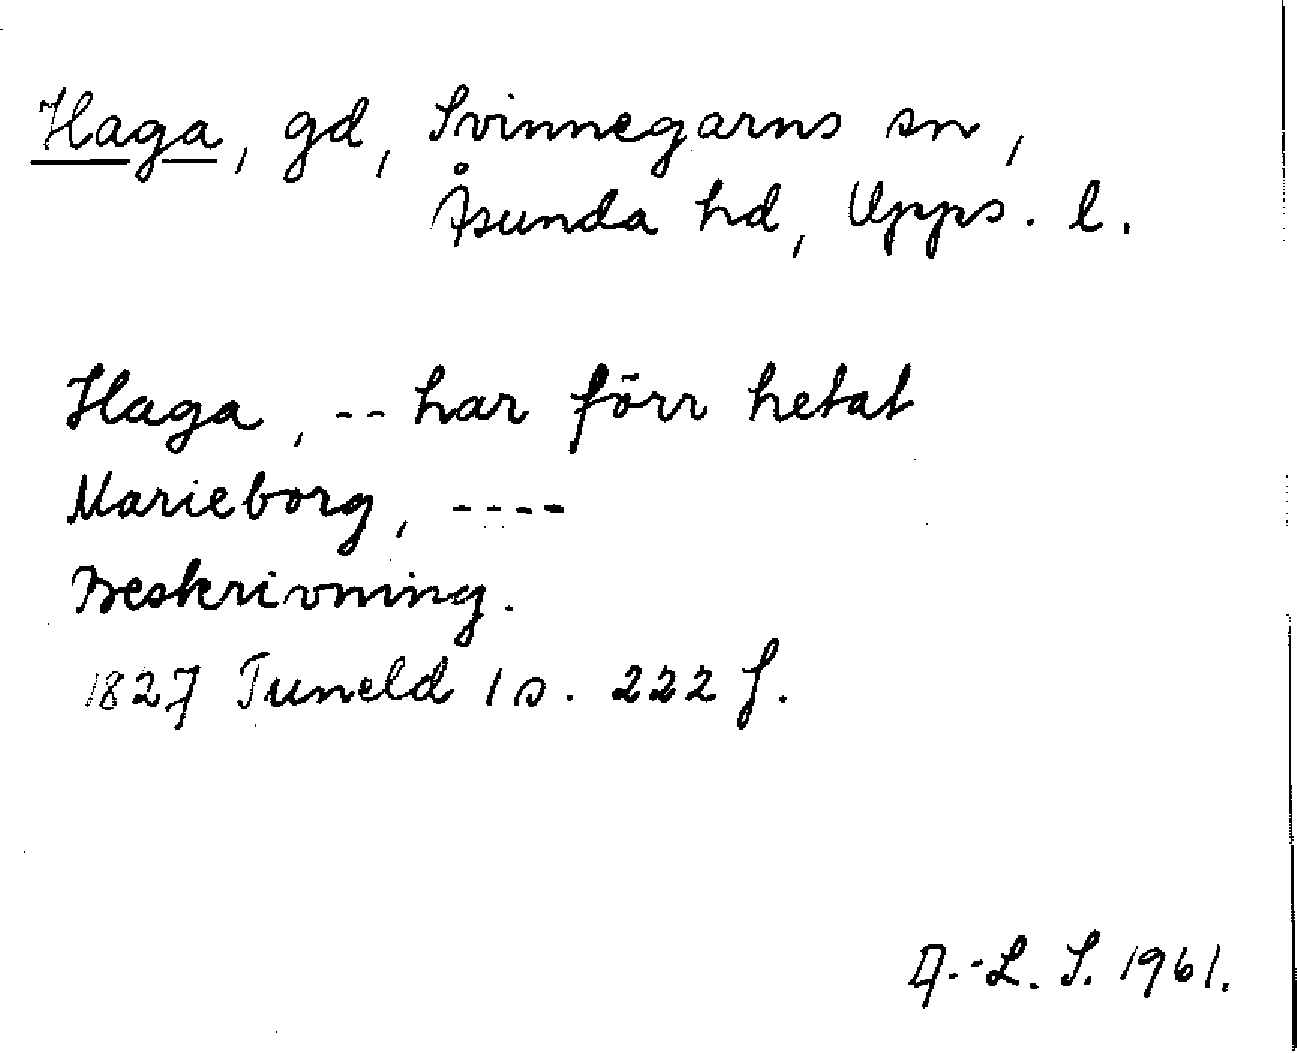 Haga, gd, Svinnegarns sn,
Åsunda hd, Upps. l.
Haga, -- har förr hetat
Marieborg, ----
Beskrivning.
1827 Tuneld 1 s. 222 f.
A.-L. S. 1961.